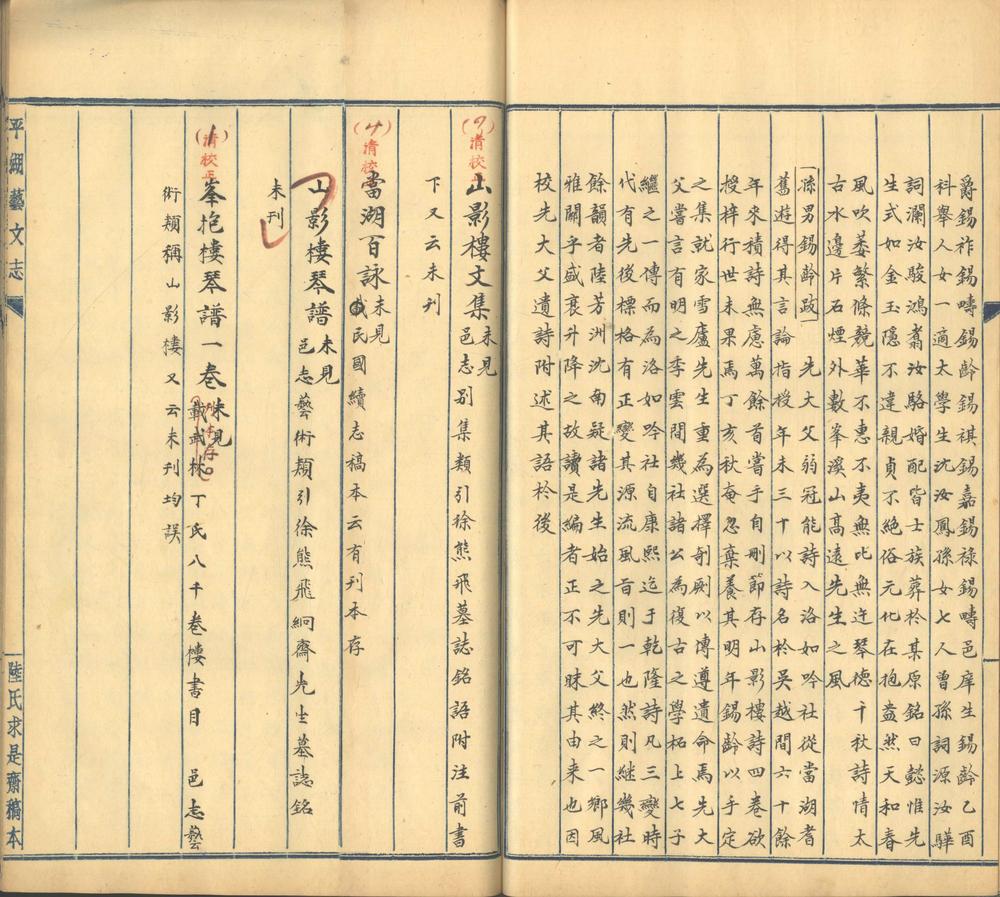 爵錫祚錫疇錫齡錫祺錫嘉錫祿錫疇邑庠生錫齡乙酉
科舉人女一適太學生沈汝鳳孫女七人曾孫詞源汝驊
詞瀾汝駿鴻翥汝駱婚配皆士族葬於某原銘曰懿惟先
生式如金玉隱不違親貞不絕俗元化在抱盎然天和春
風吹萎繁條競華不惠不夷無比無迕琴德千秋詩情太
古水邊片石煙外數峯溪山高遠先生之風
孫男錫齡跋 先大父弱冠能詩入洛如吟社從當湖耆
舊遊得其言論指授年未三十以詩名於吳越間六十餘
年來積詩無慮萬餘首嘗手自刪節存山影樓詩四卷欲
授梓行世未果焉丁亥秋奄忽棄養其明年錫齡以手定
之集就家雪廬先生重為選擇剞劂以傳遵遺命焉先大
父嘗言有明之季雲間幾社諸公為復古之學柘上七子
繼之一傳而為洛如吟社自康熙迄于乾隆詩凡三變時
代有先後標格有正變其源流風旨則一也然則継幾社
餘韻者陸芳洲沈南疑諸先生始之先大父終之一鄉風
雅關乎盛衰升降之故讀是編者正不可昧其由来也因
校先大父遺詩附述其語於後
清校正
山影樓文集 未見 邑志别集類引徐熊飛墓誌銘語附注前書
下又云未刊
清校正
當湖百詠 未見 民國續志稿本云有刊本存
山影樓琴譜 未見 邑志藝術類引徐熊飛絅齋先生墓誌銘
未刊
清校正
峯抱樓琴譜一卷 未見 載武林丁氏八千卷樓書目 邑志藝
術類稱山影樓又云未刊均誤
平湖藝文志
陸氏求是齋稿本